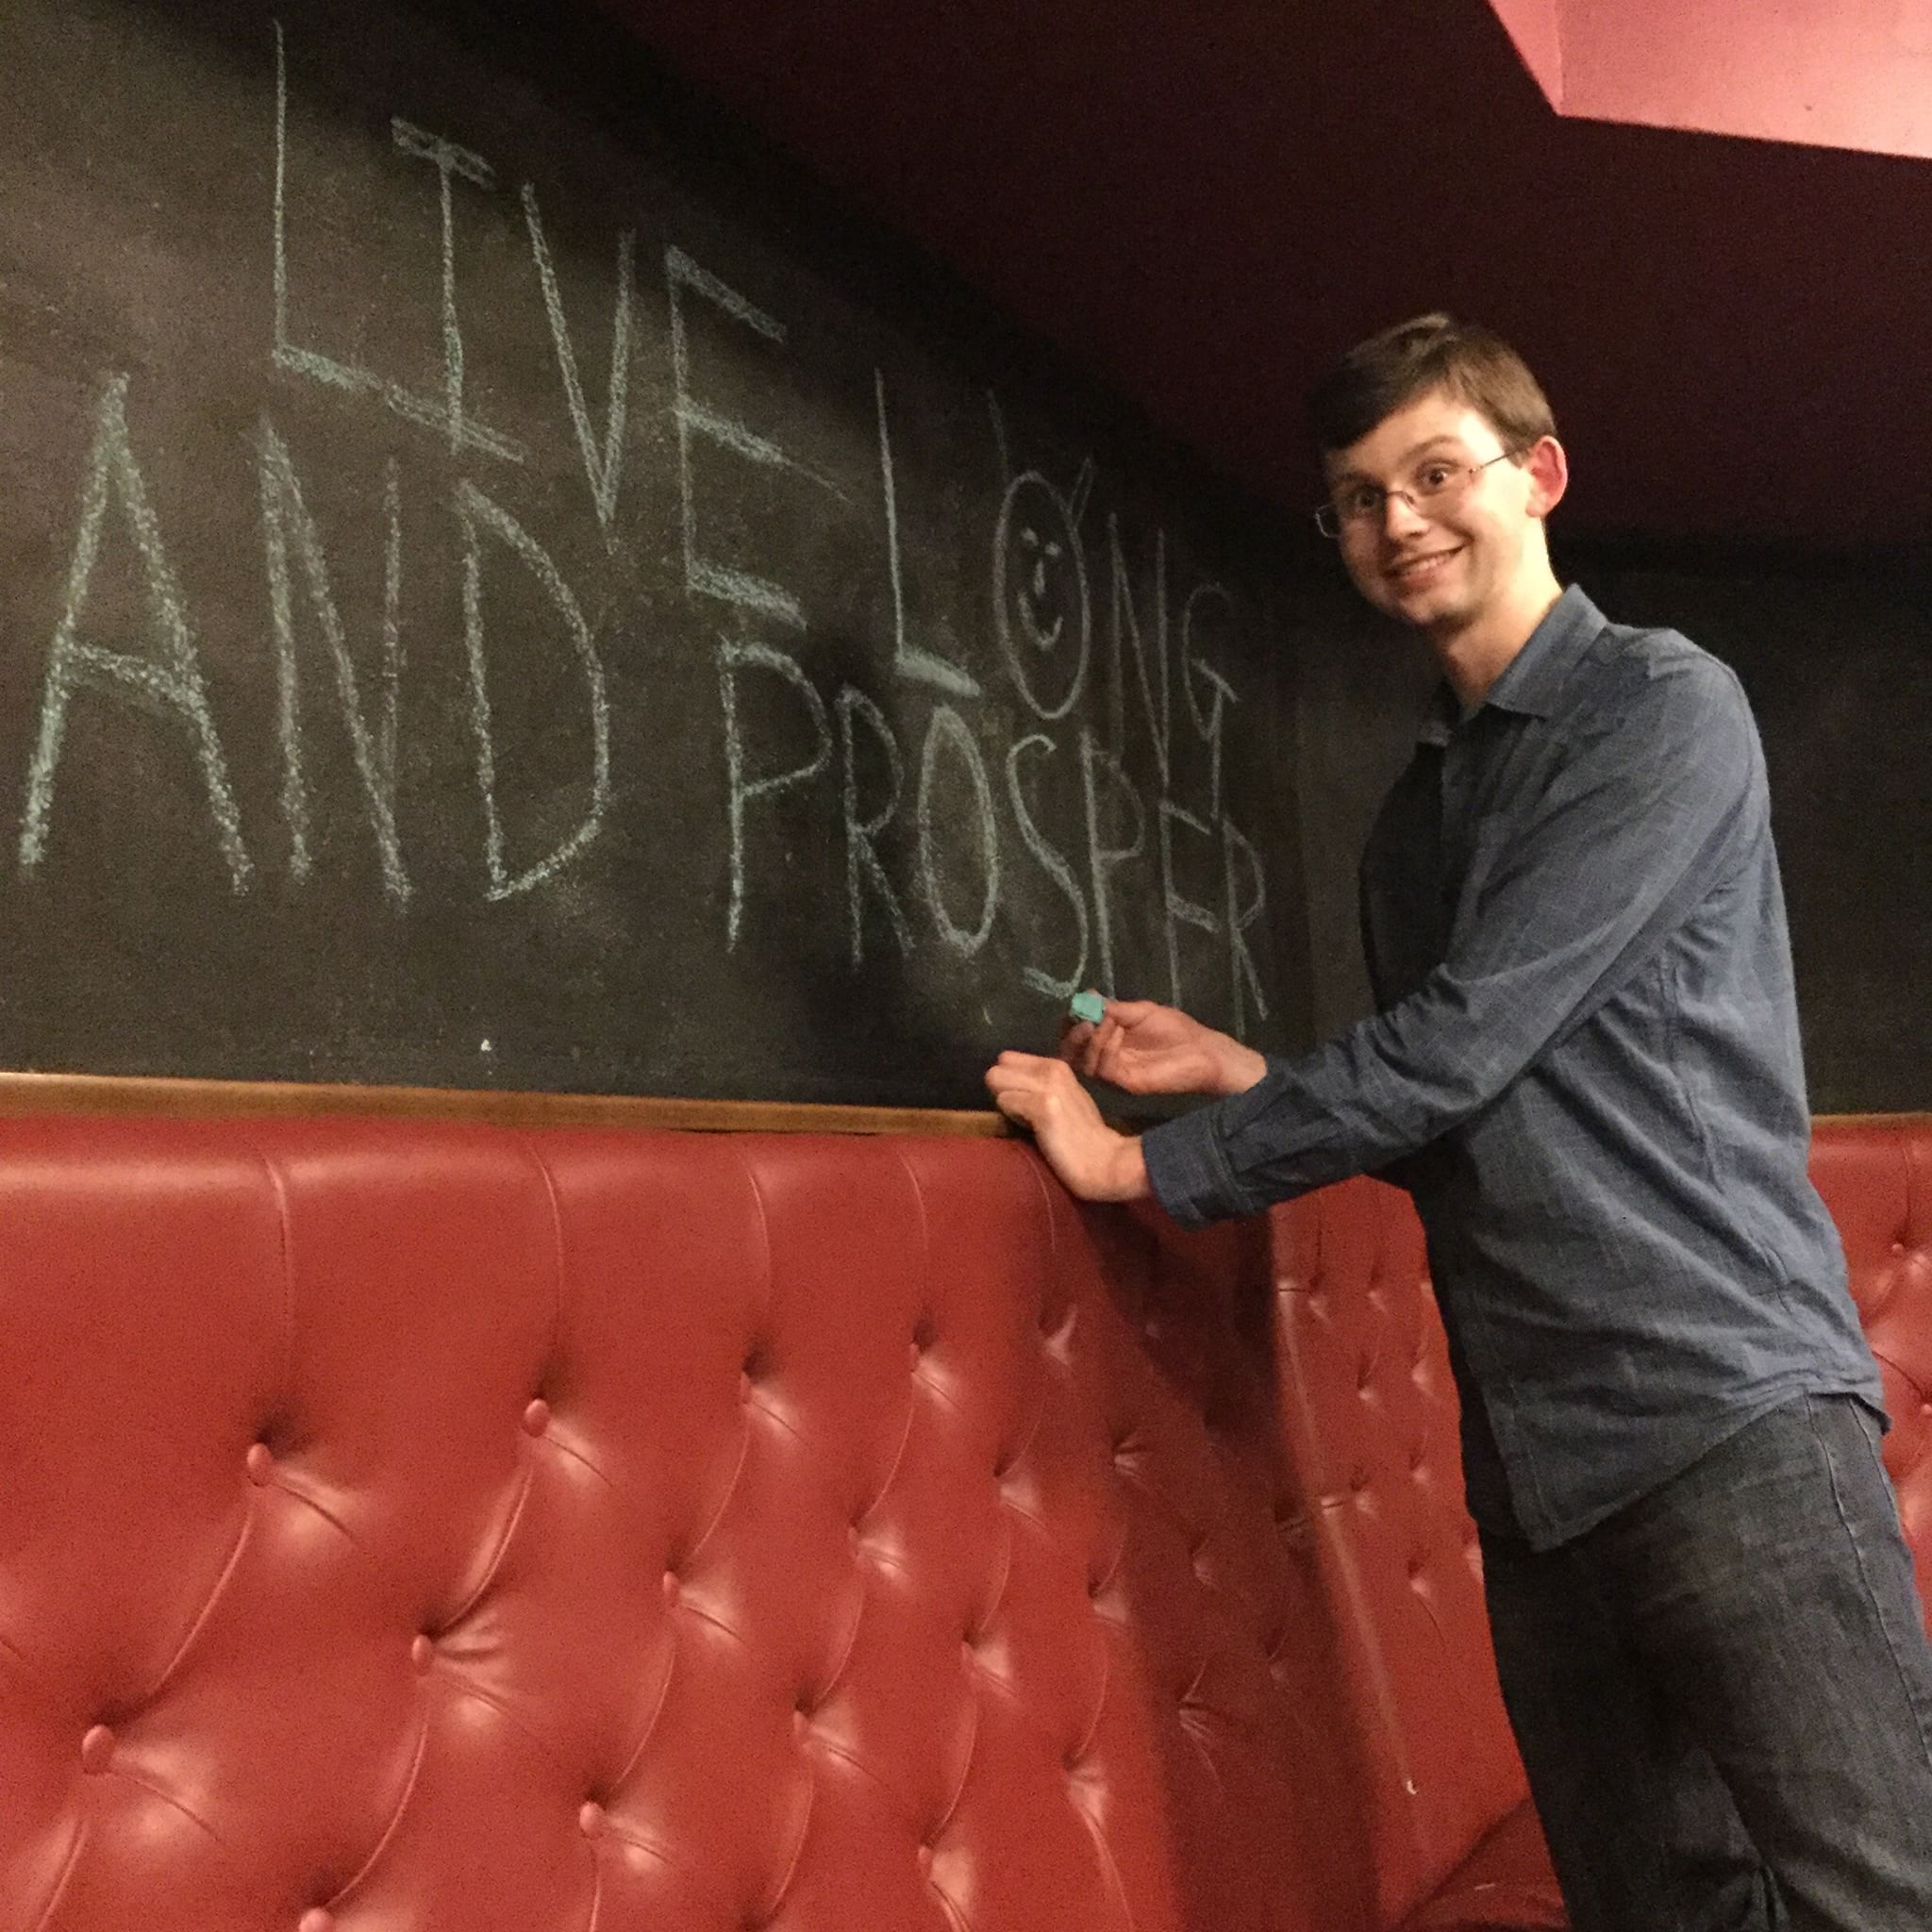 LIVE LONG
AND PROSPER